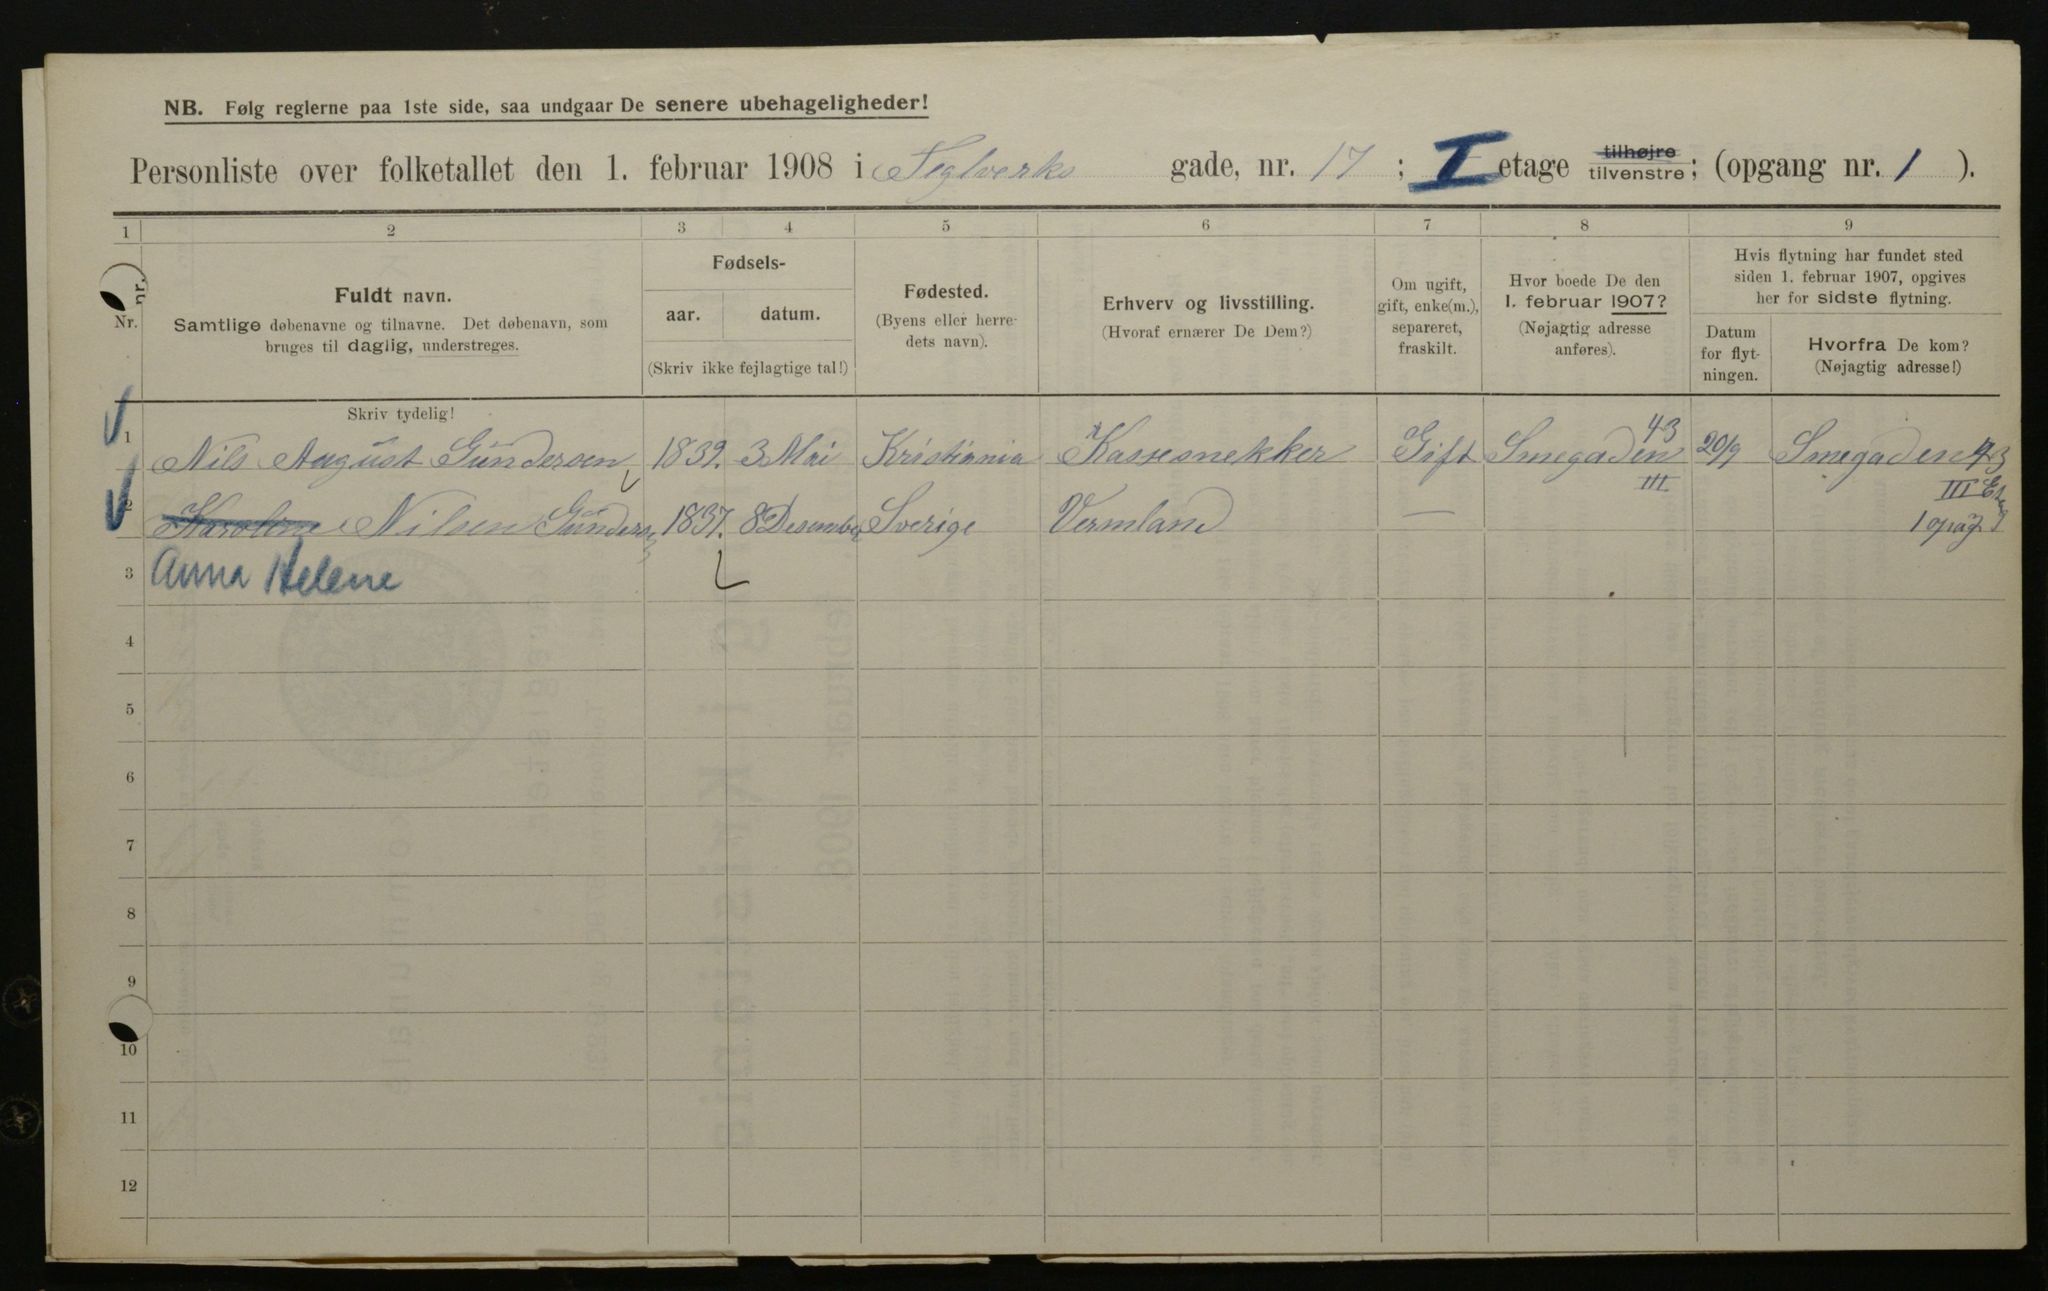 NB. Følg reglerne paa 1ste side, saa undgaar De senere ubehageligheder!
Personliste over folketallet den 1. februar 1908 i Teglverks gade, nr. 17; I etage tilhøjre tilvenstre; (opgang nr. 1).
1 2 3 4 5 6 7 8 9
Nr.
Fuldt navn.
Samtlige døbenavne og tilnavne. Det døbenavn, som
bruges til daglig, understreges.
Fødsels-
aar. datum.
(Skriv ikke fejlagtige tal!)
Fødested.
(Byens eller herre-
dets navn).
Erhverv og livsstilling.
(Hvoraf ernærer De Dem?)
Om ugift,
gift, enke(m.),
separeret,
fraskilt.
Hvor boede De den
1. februar 1907?
(Nøjagtig adresse
anføres).
Hvis flytning har fundet sted
siden 1. februar 1907, opgives
her for sidste flytning.
Datum
for flyt-
ningen.
Hvorfra De kom?
(Nøjagtig adresse!)
Skriv tydelig!
1 Nils August Gundersen 1839. 3 Mai Kristiania Kassesnekker Gift Smegaden 43 III 20/9 Smegaden 43
III Etag
2 Karoline Nilsen Gunders 1837. 8 Desember Sverige Vermland — 1 opag
3 Anna Helene
4
5
6
7
8
9
10
11
12